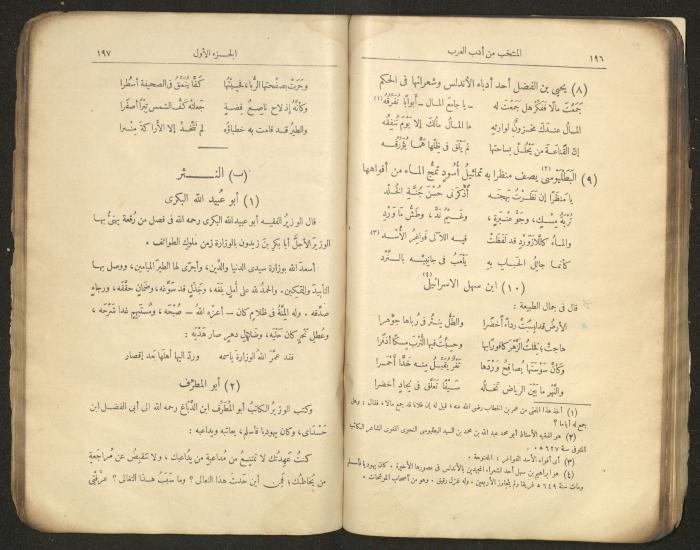 ١٩٦
المنتخب من أدب العرب
(٨) يحيى بن الفضل أحد أدباء الأندلس وشعرائها فى الحكم
جمعت مالا ففكر هل جمعت له   يا جامع المال - أبوابا تفرقه (١)
المال عندك مخزون لوارثه   ما المال مالك إلا يوم تنفقه
إن القناعة من يحلل بساحتها   لم يلق فى ظلها هما يؤرقه
(٩) البطليوسى (٢) يصف منظرا به تماثيل أسود تمج الماء من أفواهها
يا منظرا إن نظرت بهجته   أذكرنى حسن جنة الخلد
تربة مسك، وجو عنبرة،   وغيم ند، وطش ما ورد
والماء كاللازورد قد نظمت   فيه اللآلى فواغر الأسد (٣)
كأنما جائل الحباب به   يلعب فى جانبيه بالنرد
(١٠) ابن سهل الإسرائيلى (٤)
قال فى جمال الطبيعة :
الأرض قد لبست رداء أخضرا   والطل ينثر فى رباها جوهرا
هاجت ؛ فخلت الزهر كافورا بها   وحسبت فيها الترب مسكا أذفرا
وكأن سوسنها يصافح وردها   ثغر يقبل منه خدا أحمرا
والنهر ما بين الرياض تخاله   سيفا تعلق فى نجاد أخضرا
(١) أخذ هذا المعنى من عمر بن الخطاب رضى الله عنه ، قيل له إن فلانا قد جمع مالا ، فقال : وهل
جمع له أياما ؟
(٢) هو الفقيه الأستاذ أبو محمد عبد الله بن محمد بن السيد البطليوسى النحوى اللغوى الشاعر الكاتب
المتوفى سنة
(٣) أى أفواه الأسد الفواغر : المفتوحة .
(٤) هو إبراهيم بن سهل أحد الشعراء المجيدين بالأندلس فى عصورها الأخيرة . كان يهوديا فأسلم
ومات سنة ٦٤٩ ه غريقا ولم يتجاوز الأربعين . وله غزل رقيق . وهو من أصحاب الموشحات .
الجزء الأول
١٩٧
وجرت بصفحتها الربا، فحسبتها   كفا ينمق فى الصحيفة أسطرا
وكأنه إذ لاح ناصع فضة   جعلته كف الشمس تبرا أصفرا
والطير قد قامت به خطباؤه   لم تتخذ إلا الأراكة منبرا
(ب) النثر
(١) أبو عبيد الله البكرى
قال الوزير الفقيه أبو عبيد الله البكرى رحمه الله فى فصل من رقعة يهنئ بها
الوزير الأجل أبا بكر بن زيدون بالوزارة زمن ملوك الطوائف .
أسعد الله بوزارة سيدى الدنيا والدين، وأجرى لها الطير الميامين، ووصل بها
التأييد والتمكين . والحمد لله على أمل بلغه ، وجذل قد سوغه ، وضمان حققه ، ورجاء
صدقه . وله المنة فى ظلام كان - أعزه الله - صبحه ، ومستبهم غدا شرحه ،
وعطل نحر كان حليه ، وضلال دهر صار هديه :
فقد عمر الله الوزارة باسمه   ورد اليها أهلها بعد إقصار
(٢) أبو المطرف
وكتب الوزير الكاتب أبو المطرف ابن الدباغ رحمه الله الى أبى الفضل ابن
حسداى، وكان يهوديا فأسلم، يعاتبه ويداعبه :
كنت عهدتك لا تمتنع من مداعبة من يداعبك ، ولا تنقبض عن مراجعة
من يخاطبك ؛ فمن أين حدث هذا التعالى ؟ وما سبب هذا التغالى ؟ عرفنى